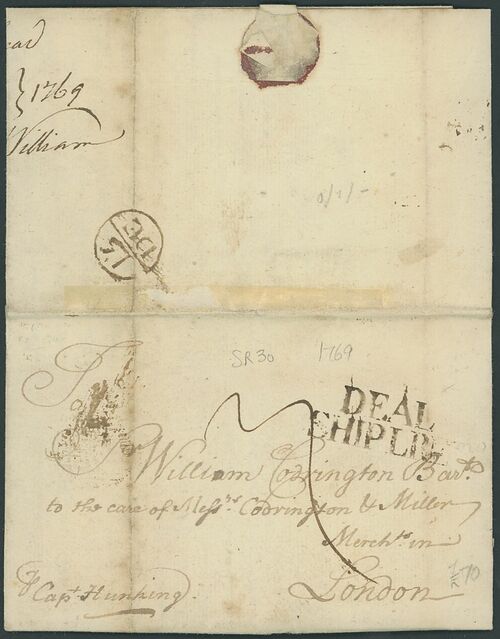 1769
William
DE
15
SR30 1769
To
DEAL
SHIP LRE
Sr William Codrington Bart.
to the care of Messrs Codrington & Miller
Merchts in
London
Capt Hunking